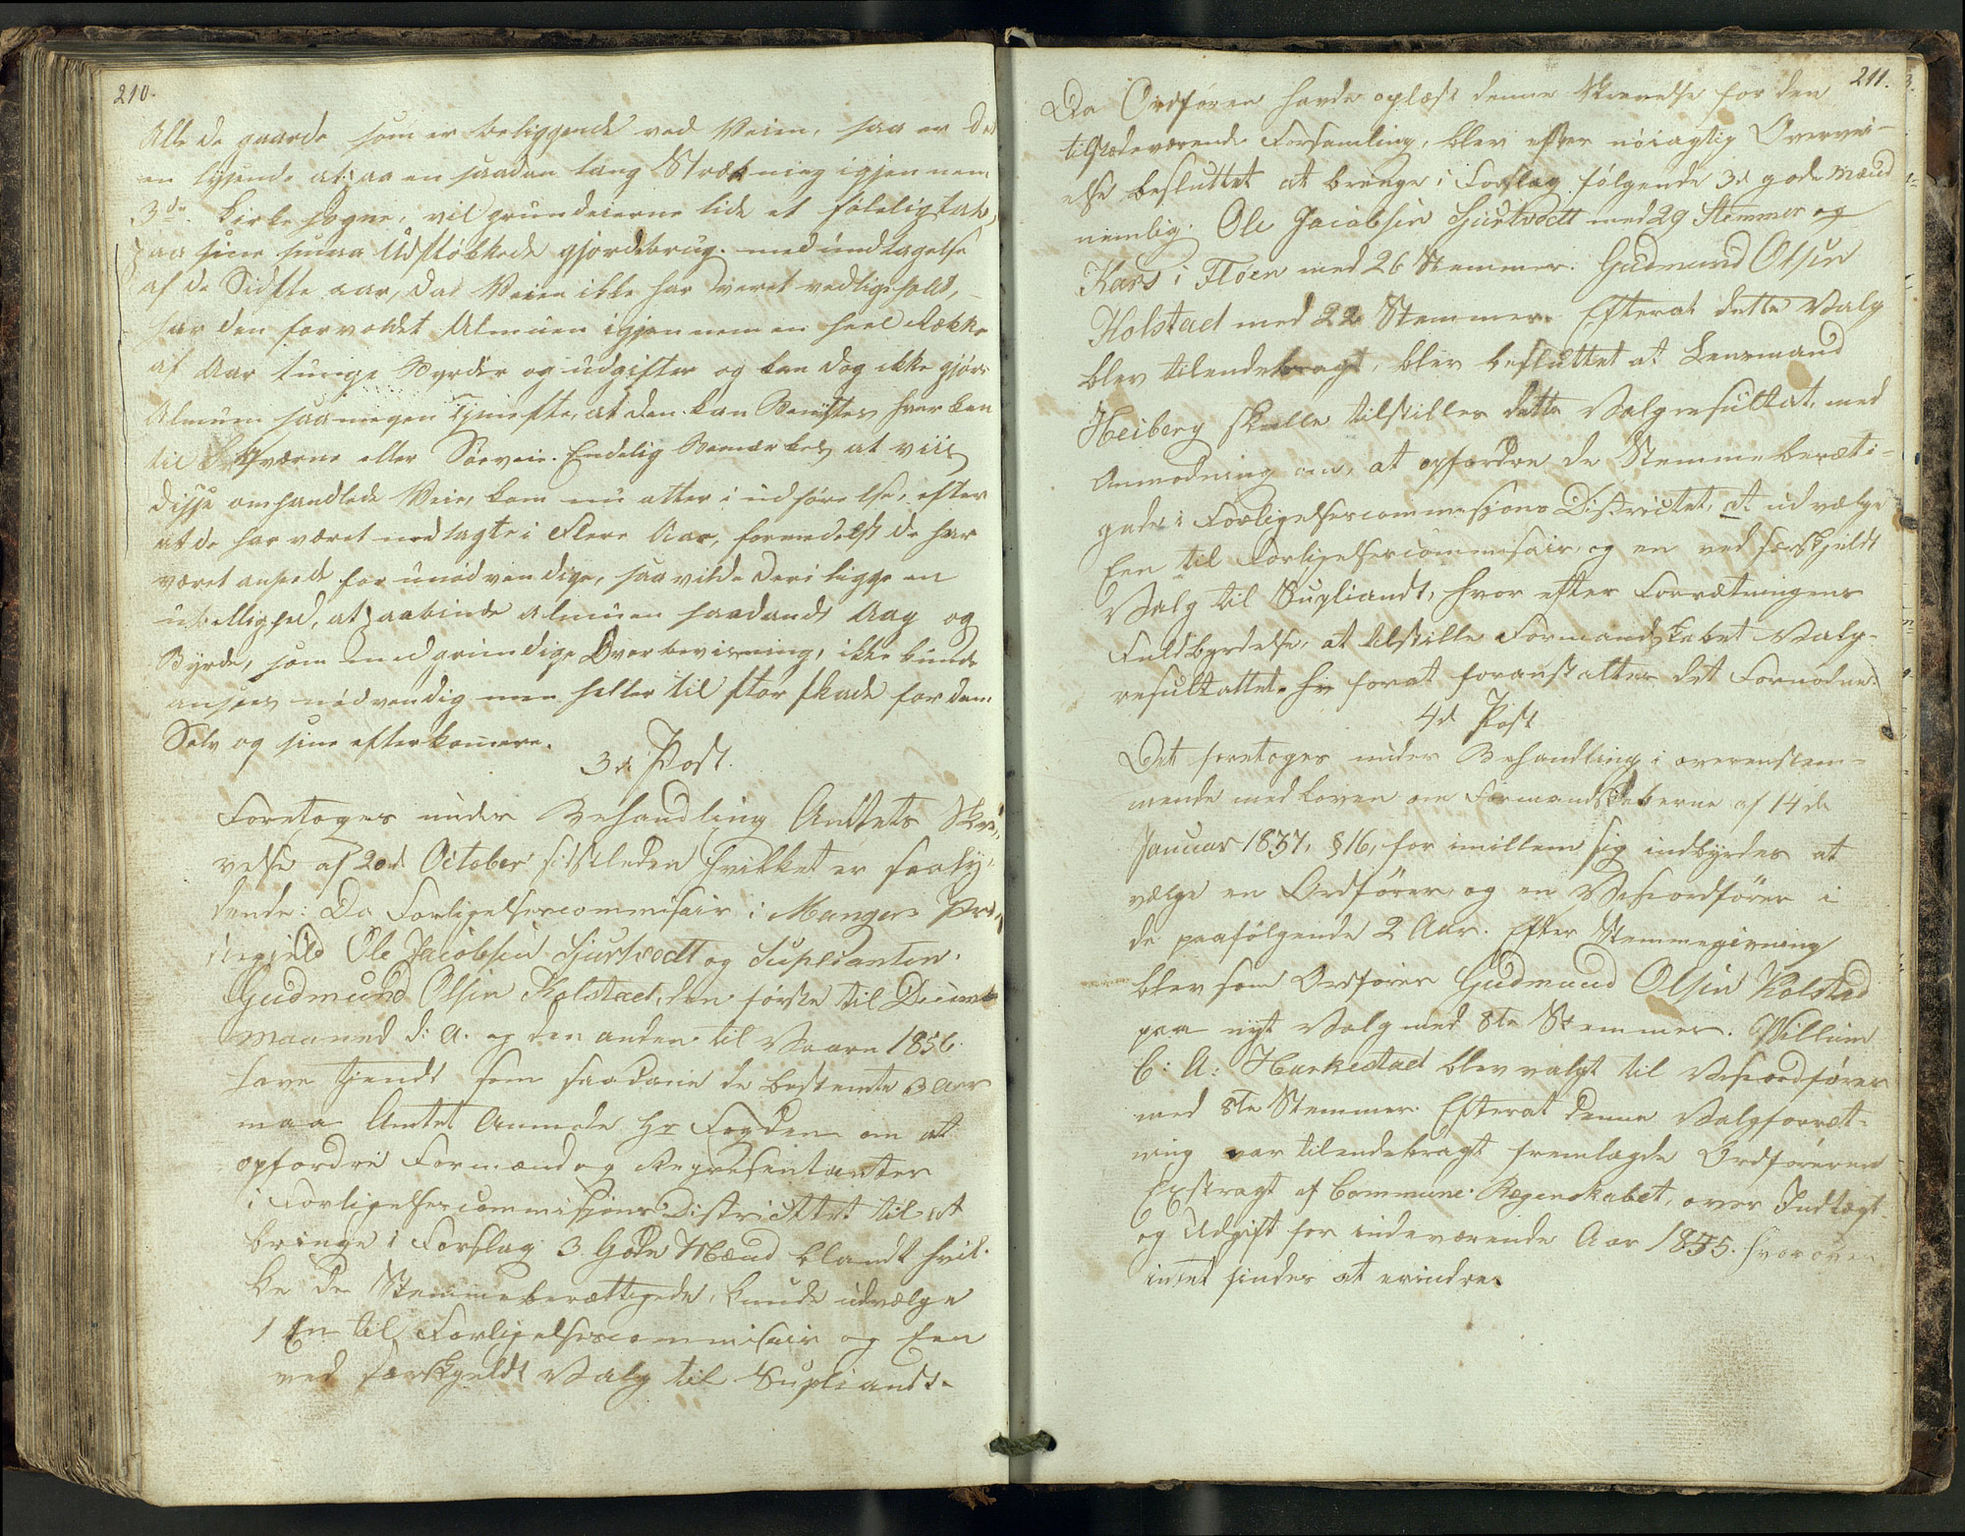 210.
Alle de gaarde som er beliggende ved Veien, saa er det
en lysende at paa en saadan lang Strækning igjennem
3de Kirkesogne, vil grundeierne lide et føleligt tab
paa sine smaa Udstøkkede gjordebrug. med undtagelse
af de Sidste aar, da Veien ikke har været vedligeholdt,
har den forvoldet Almuen igjennem en heel Række
af Aar tunge Byrder og udgifter og kan dog ikke gjøre
Almuen saa megen tjeneste, at den kan Benyttes hverken
til Qværne eller Søeveie. Endelig Bemærkes at viis
disse omhandlede Veie, kom nu atter i udførelse, efter
at de har været nedlagte i Flere Aar, formedelst de har
været anseed for unødvendige, saa vilde deri ligge en
ubillighed, at paabinde almuen saadandt Aag og
Byrde, som med grundige Overbeviisning, ikke kunde
ansees nødvendig men heller til stor skade for dem
Selv og sine efterkomere.
3de Post.
Foretoges under Behandling Amtets Skri-
velse af 20de October sidstleden hvilket er saaly-
dende: Da Forligelsescommisair i Mangers Præ-
stegjeld Ole Jacobsen Hjurtvedt og Suplianten
Gudmund Olsen Holstad, den første til December
maaned d: A. og den anden til Vaaren 1856
have tjendt som saadane de bestemte 3 Aar
maa Amtet Anmode Hr Fogden om at
opfordre Formænd og Representanter
i Forligelsescommissions Districttet til at
bringe i Forslag 3 Gode Mænd blandt hvil-
ke de Stemmeberættigede, kunde udvælge
1 En til Forligelsescommisair og Een
ved særskjeldt Valg til Supliandt.
211.
Da Ordføren havde oplæst denne Skrivelse for den
tilstædeværende Forsamling, blev efter nøiagtig Overvei-
else besluttet at bringe i Forslag følgende 3de gode mænd
nemlig: Ole Jacobsen Hjurtvedt med 29 Stemmer og
Lars i Fløen med 26 Stemmer. Gudmund Olsen
Holstad med 22 Stemmer. Efterat dette Valg
blev tilendebragt, blev besluttet at Lensmand
Heiberg skulle tilstilles dette Valgresultat, med
Anmodning om, at opfordre de Stemmeberæti-
gede i Forligelsescommissions Districtet, at udvælge
Een til Forligelsescommisair og en ved særskjeldt
Valg til Supliandt, hvor efter Forrætningens
Fuldbyrdelse, at tilstille Formandskabet Valg-
resultattet. for at foranstaltes det Fornødne.
4de Post
Det foretoges under Behandling i overenstem-
mende med Loven om Formandskaberne af 14de
Januar 1837, § 16, for imillem sig indbyrdes at
vælge en Ordfører og en Viseordfører i
de paafølgende 2 Aar. Efter Stemmegivning
blev som Ordfører Gudmund Olsen Holstad
paa nyt Valg med 8te Stemmer. Villum
C: A: Harkestad blev valgt til Viseordfører
med 8te Stemmer. Efterat denne Valgforræt-
ning var tilendebragt fremlagde Ordføreren
Exstragt af Commune Regenskabet, over Indtægt
og Udgift for indeværende Aar 1855. hvorover
intet findes at erindre.